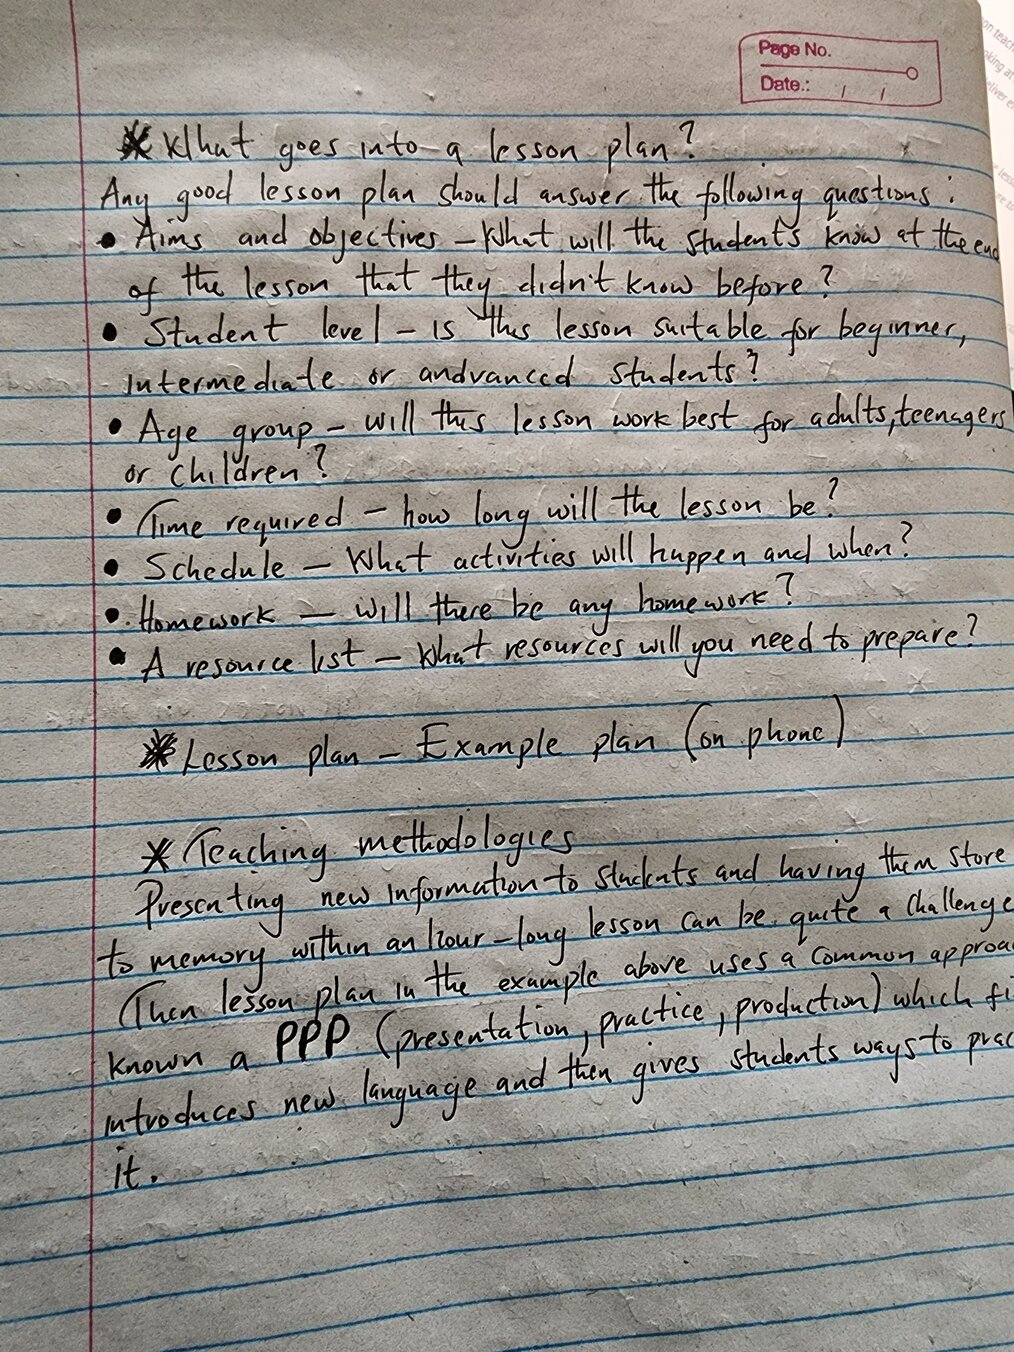 Page No.
Date.: / /
* What goes into a lesson plan?
Any good lesson plan should answer the following questions:
• Aims and objectives – What will the students know at the end
of the lesson that they didn't know before?
• Student level – is this lesson suitable for beginner,
intermediate or andvanced students?
• Age group – will this lesson work best for adults, teenagers
or children?
• Time required – how long will the lesson be?
• Schedule – What activities will happen and when?
• Homework – will there be any homework?
• A resource list – What resources will you need to prepare?
* Lesson plan – Example plan (on phone)
* Teaching methodologies
Presenting new information to students and having them store
to memory within an hour-long lesson can be quite a challenge
Then lesson plan in the example above uses a common approa
known a PPP (presentation, practice, production) which fi
introduces new language and then gives students ways to prac
it.